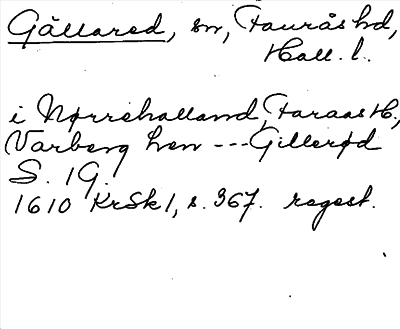 Gällared, sn, Faurås hd,
Hall. l.
i Nørrehalland, Faraas H.,
Varberg Len --- Gillerød
S. 19.
1610 KrSk1, s. 367. regest.